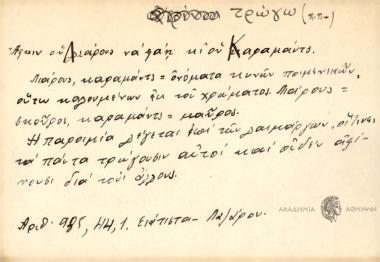 τρώγω (π.π.)
Ἀφκιν οὑ Λιάρους να φάῃ κι οὑ Καραμάντς.
Λιάρους, καραμάντς = ὀνόματα κυνῶν ποιμενικῶν,
οὕτω καλουμένων ἐκ τοῦ χρώματος. Λιάρους =
σκοῦρος, καραμάντς = μαῦρος.
Ἡ παροιμία λέγεται ἐπί τῶν λαιμάργων, οἵτινες
τά πάντα τρώγουσιν αὐτοί καί οὐδέν ἀφί-
νουσι διά τούς ἄλλους.
Ἀριθ. 985, ΗΗ, 1. Σιάτιστα - Λαζάρου.
ΑΚΑΔΗΜΙΑ ΑΘΗΝΩΝ